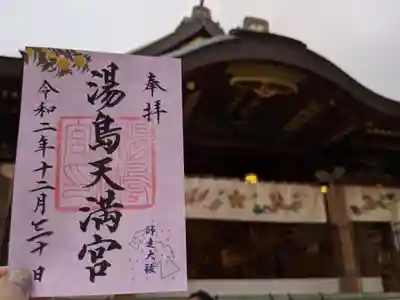 奉拝
湯島天満宮
令和二年十二月三十日
師走大祓